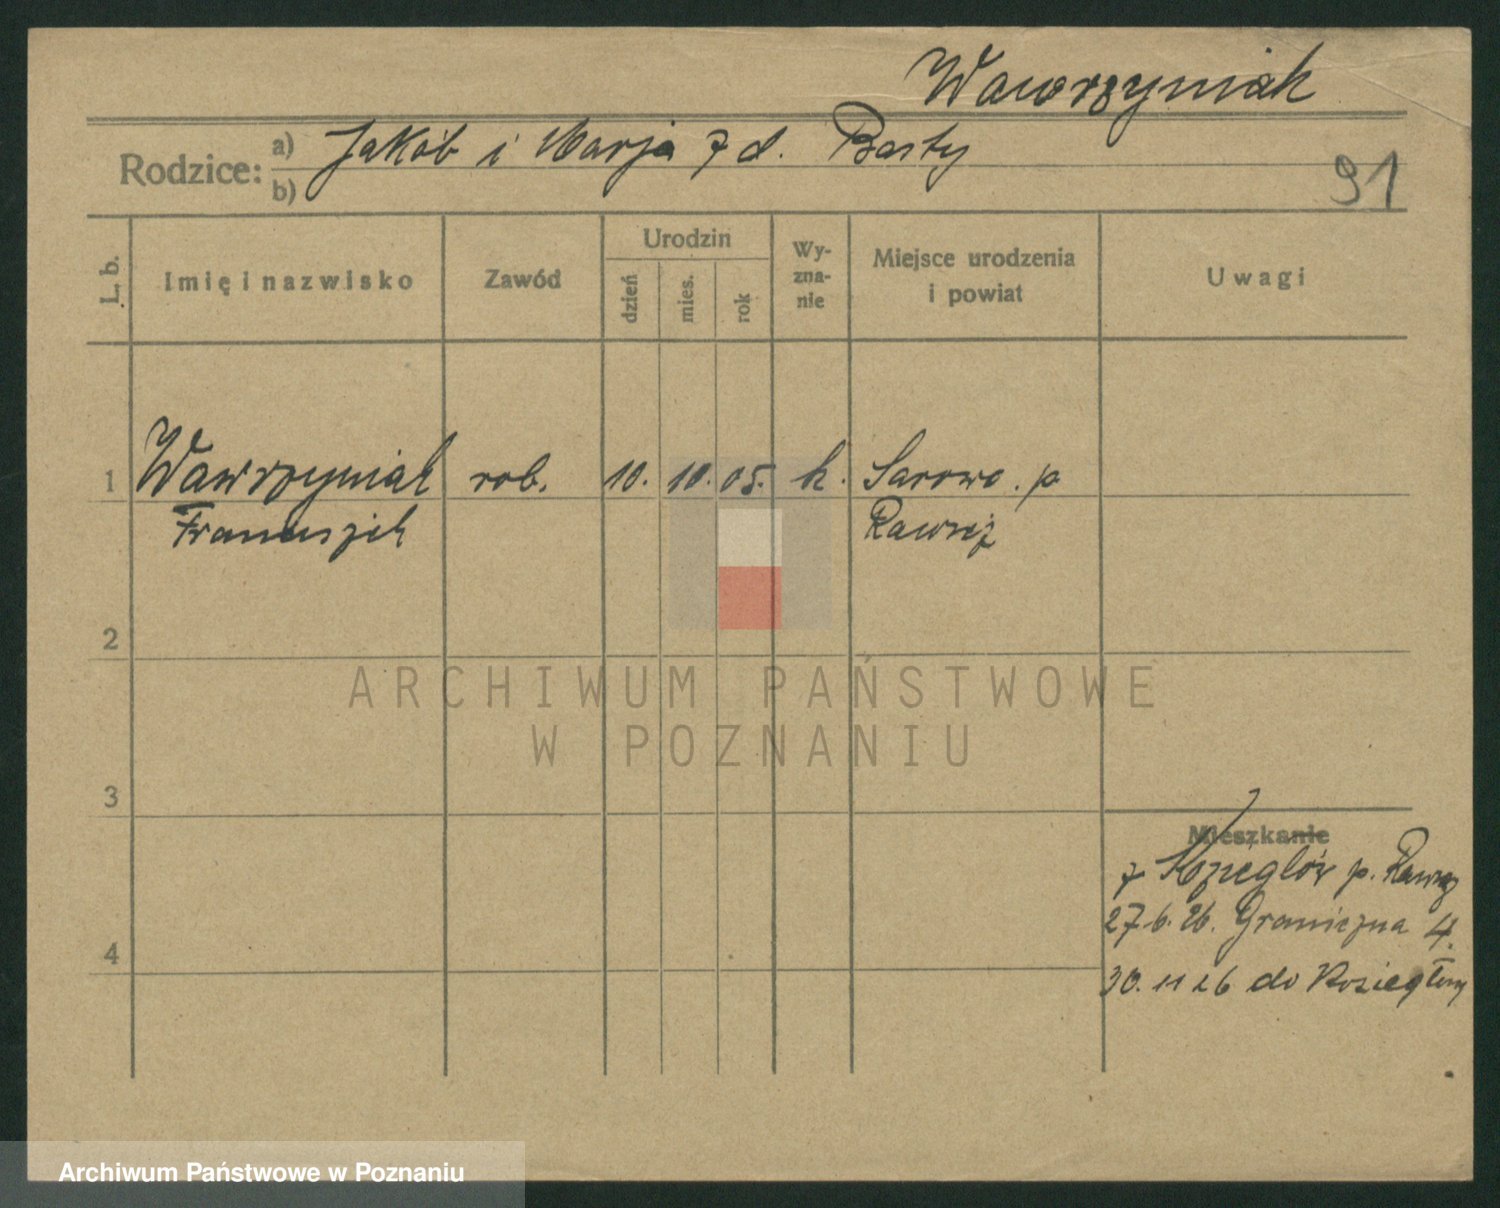 Wawrzyniak
Rodzice: a) Jakób i Marja z d. Basty
b)
91
L. b.
Imię i nazwisko
Zawód
Urodzin
dzień
mies.
rok
Wy-
zna-
nie
Miejsce urodzenia
i powiat
Uwagi
1 Wawrzyniak rob. 10. 10. 05. k. Sarowo. p.
Franciszek
2
3
4
Mieszkanie
z p. Rawicz
27.6.26. Graniczna 4.
30. 11 26 do
ARCHIWUM PAŃSTWOWE
W POZNANIU
Archiwum Państwowe w Poznaniu